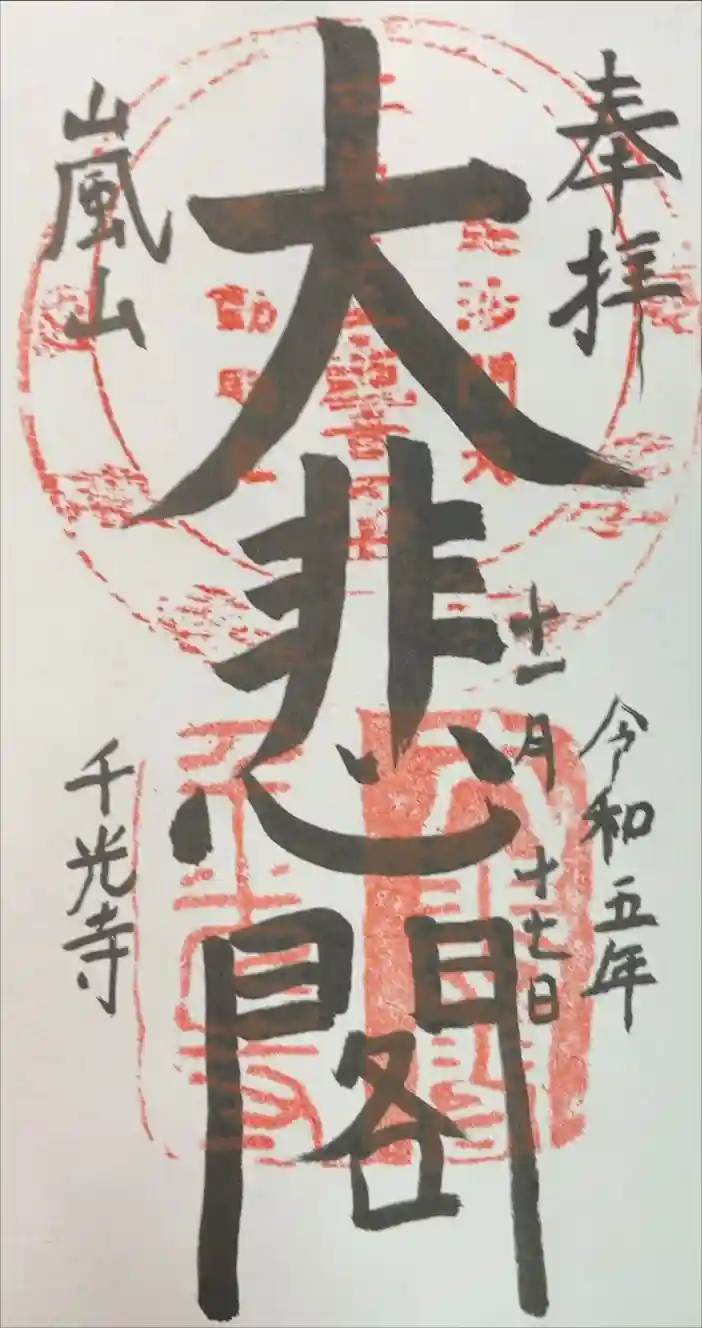 奉拝
令和五年
十一月十七日
大悲閣
嵐山
千光寺
沙門天